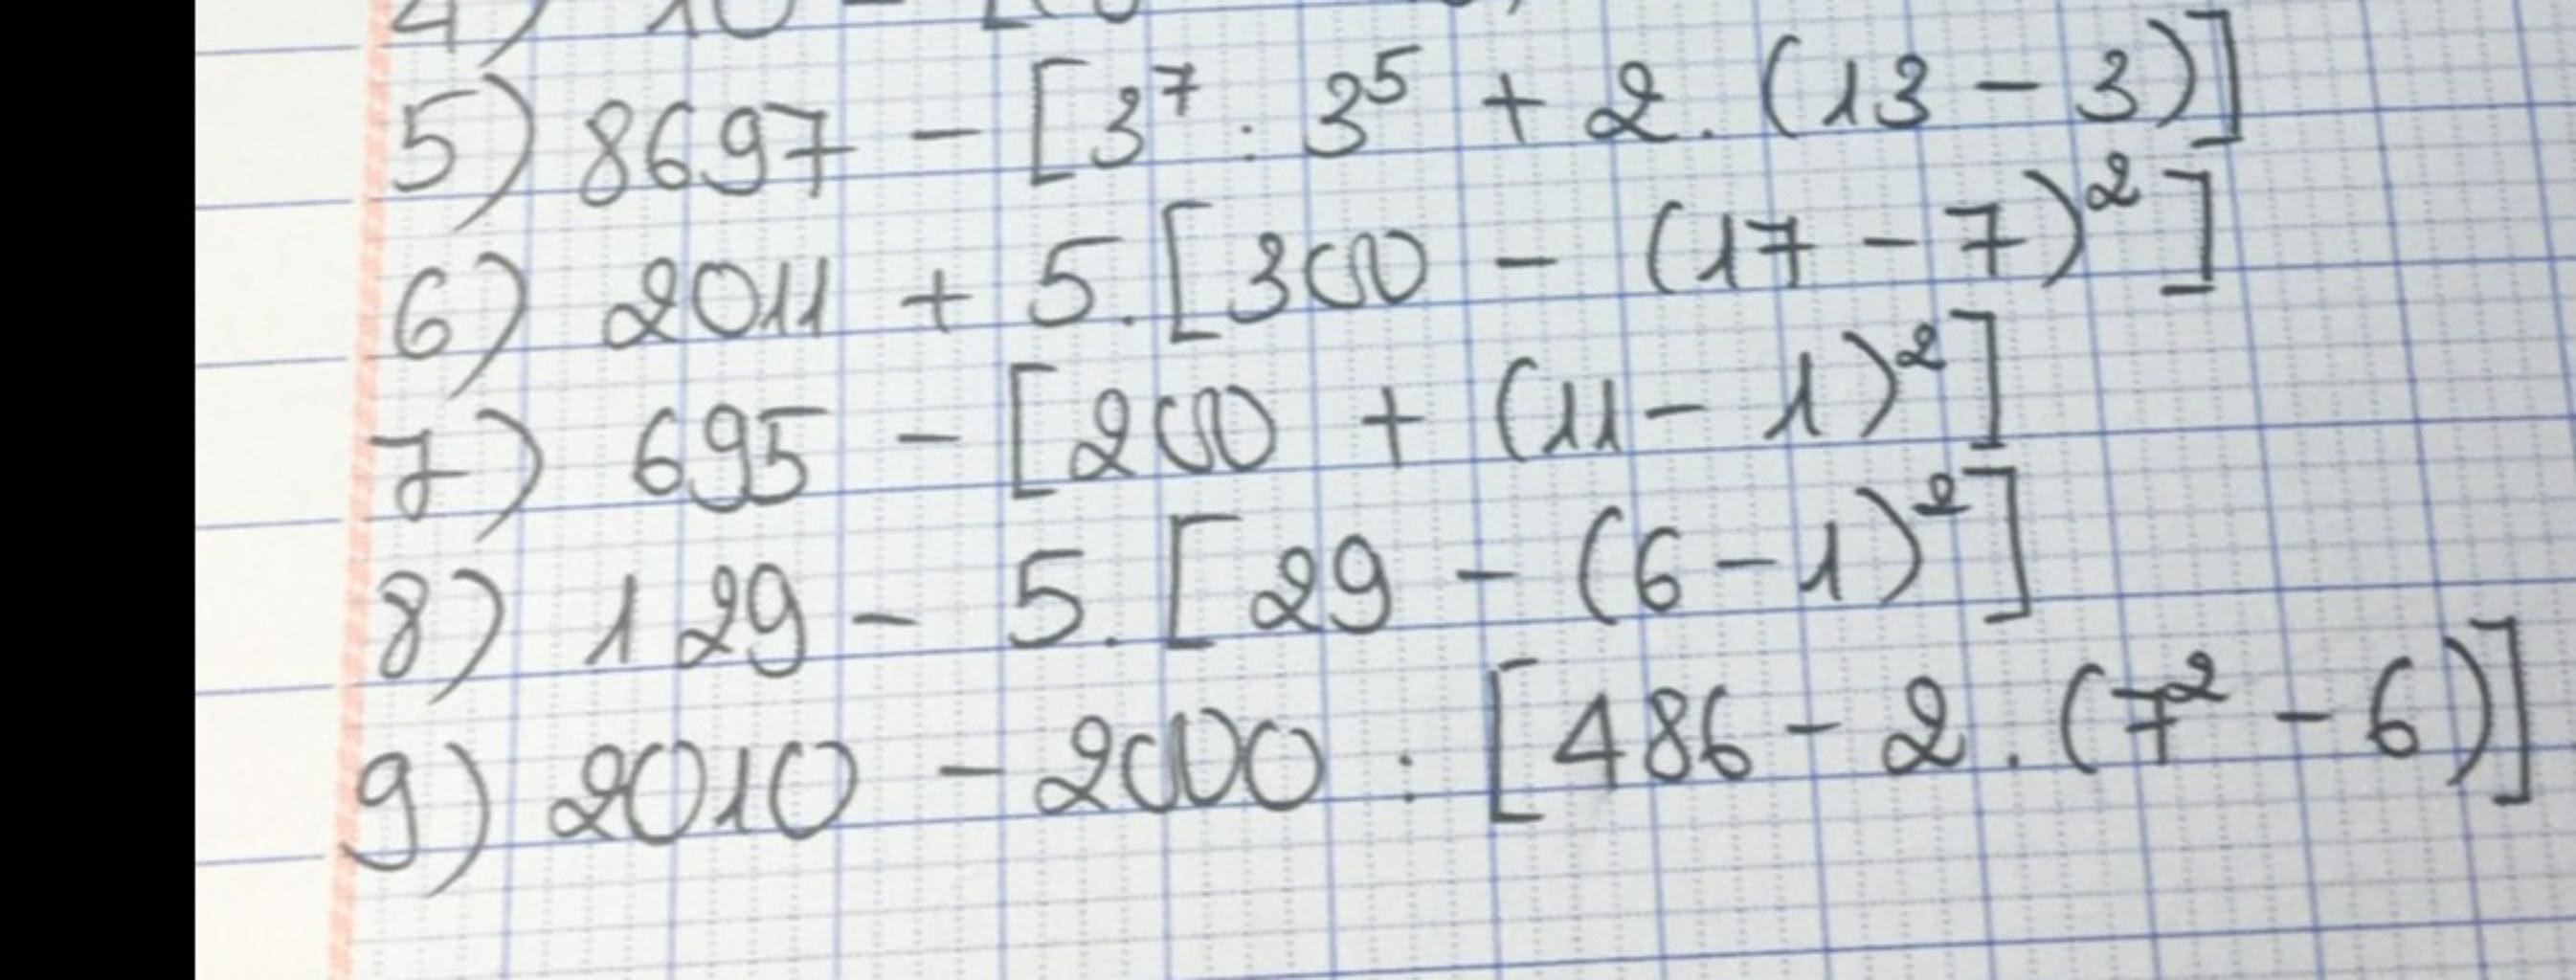 5) 8697 - [3⁷ : 3⁵ + 2. (13 - 3)]
6) 2011 + 5. [300 - (17 - 7)²]
7) 695 - [200 + (11 - 1)²]
8) 129 - 5. [29 - (6 - 1)²]
9) 2010 - 2000 : [486 - 2. (7² - 6)]